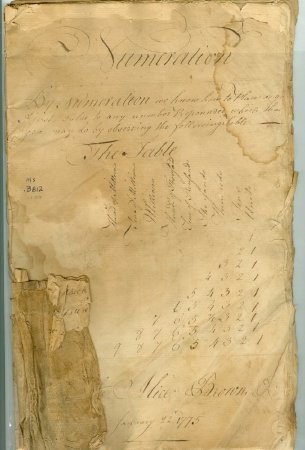 Numeration
By Numeration we know how to Place
value to any number Proposed which the
may do by observing the following Table
The Table
Hund of Millions
Tens of Millions
Millions
Hund of Thousands
Tens of Thousands
Thousands
Hundreds
Tens
Units
1
2 1
3 2 1
4 3 2 1
5 4 3 2 1
6 5 4 3 2 1
7 6 5 4 3 2 1
8 7 6 5 4 3 2 1
9 8 7 6 5 4 3 2 1
MS
.B812
Alice Brown
January 1775